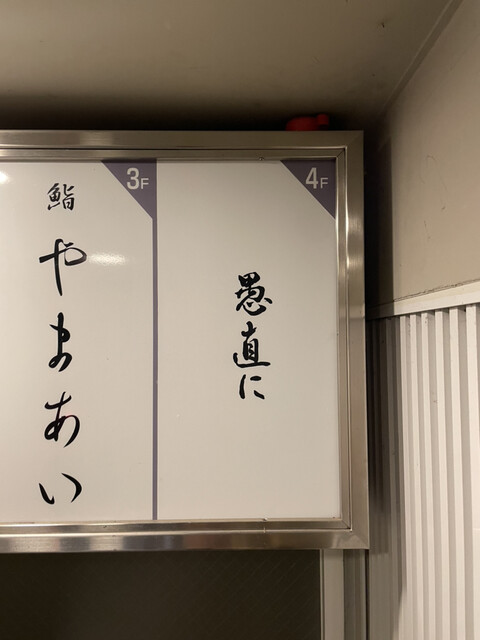 3F
鮨 やまあい
4F
愚直に